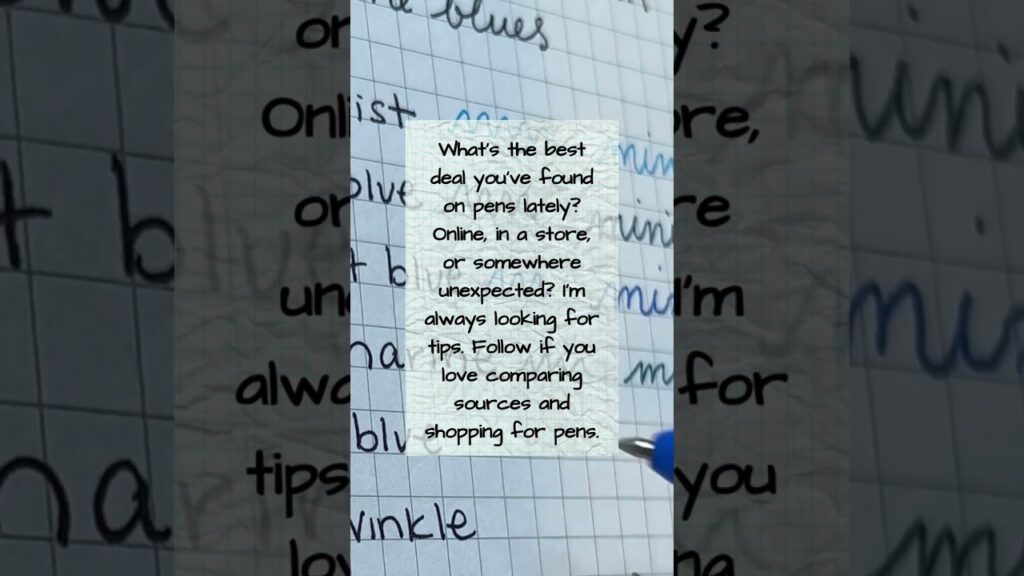 blues
ist
What's the best
deal you've found
on pens lately?
Online, in a store,
or somewhere
unexpected? I'm
always looking for
tips. Follow if you
love comparing
sources and
shopping for pens.
blue
t blue
inkle